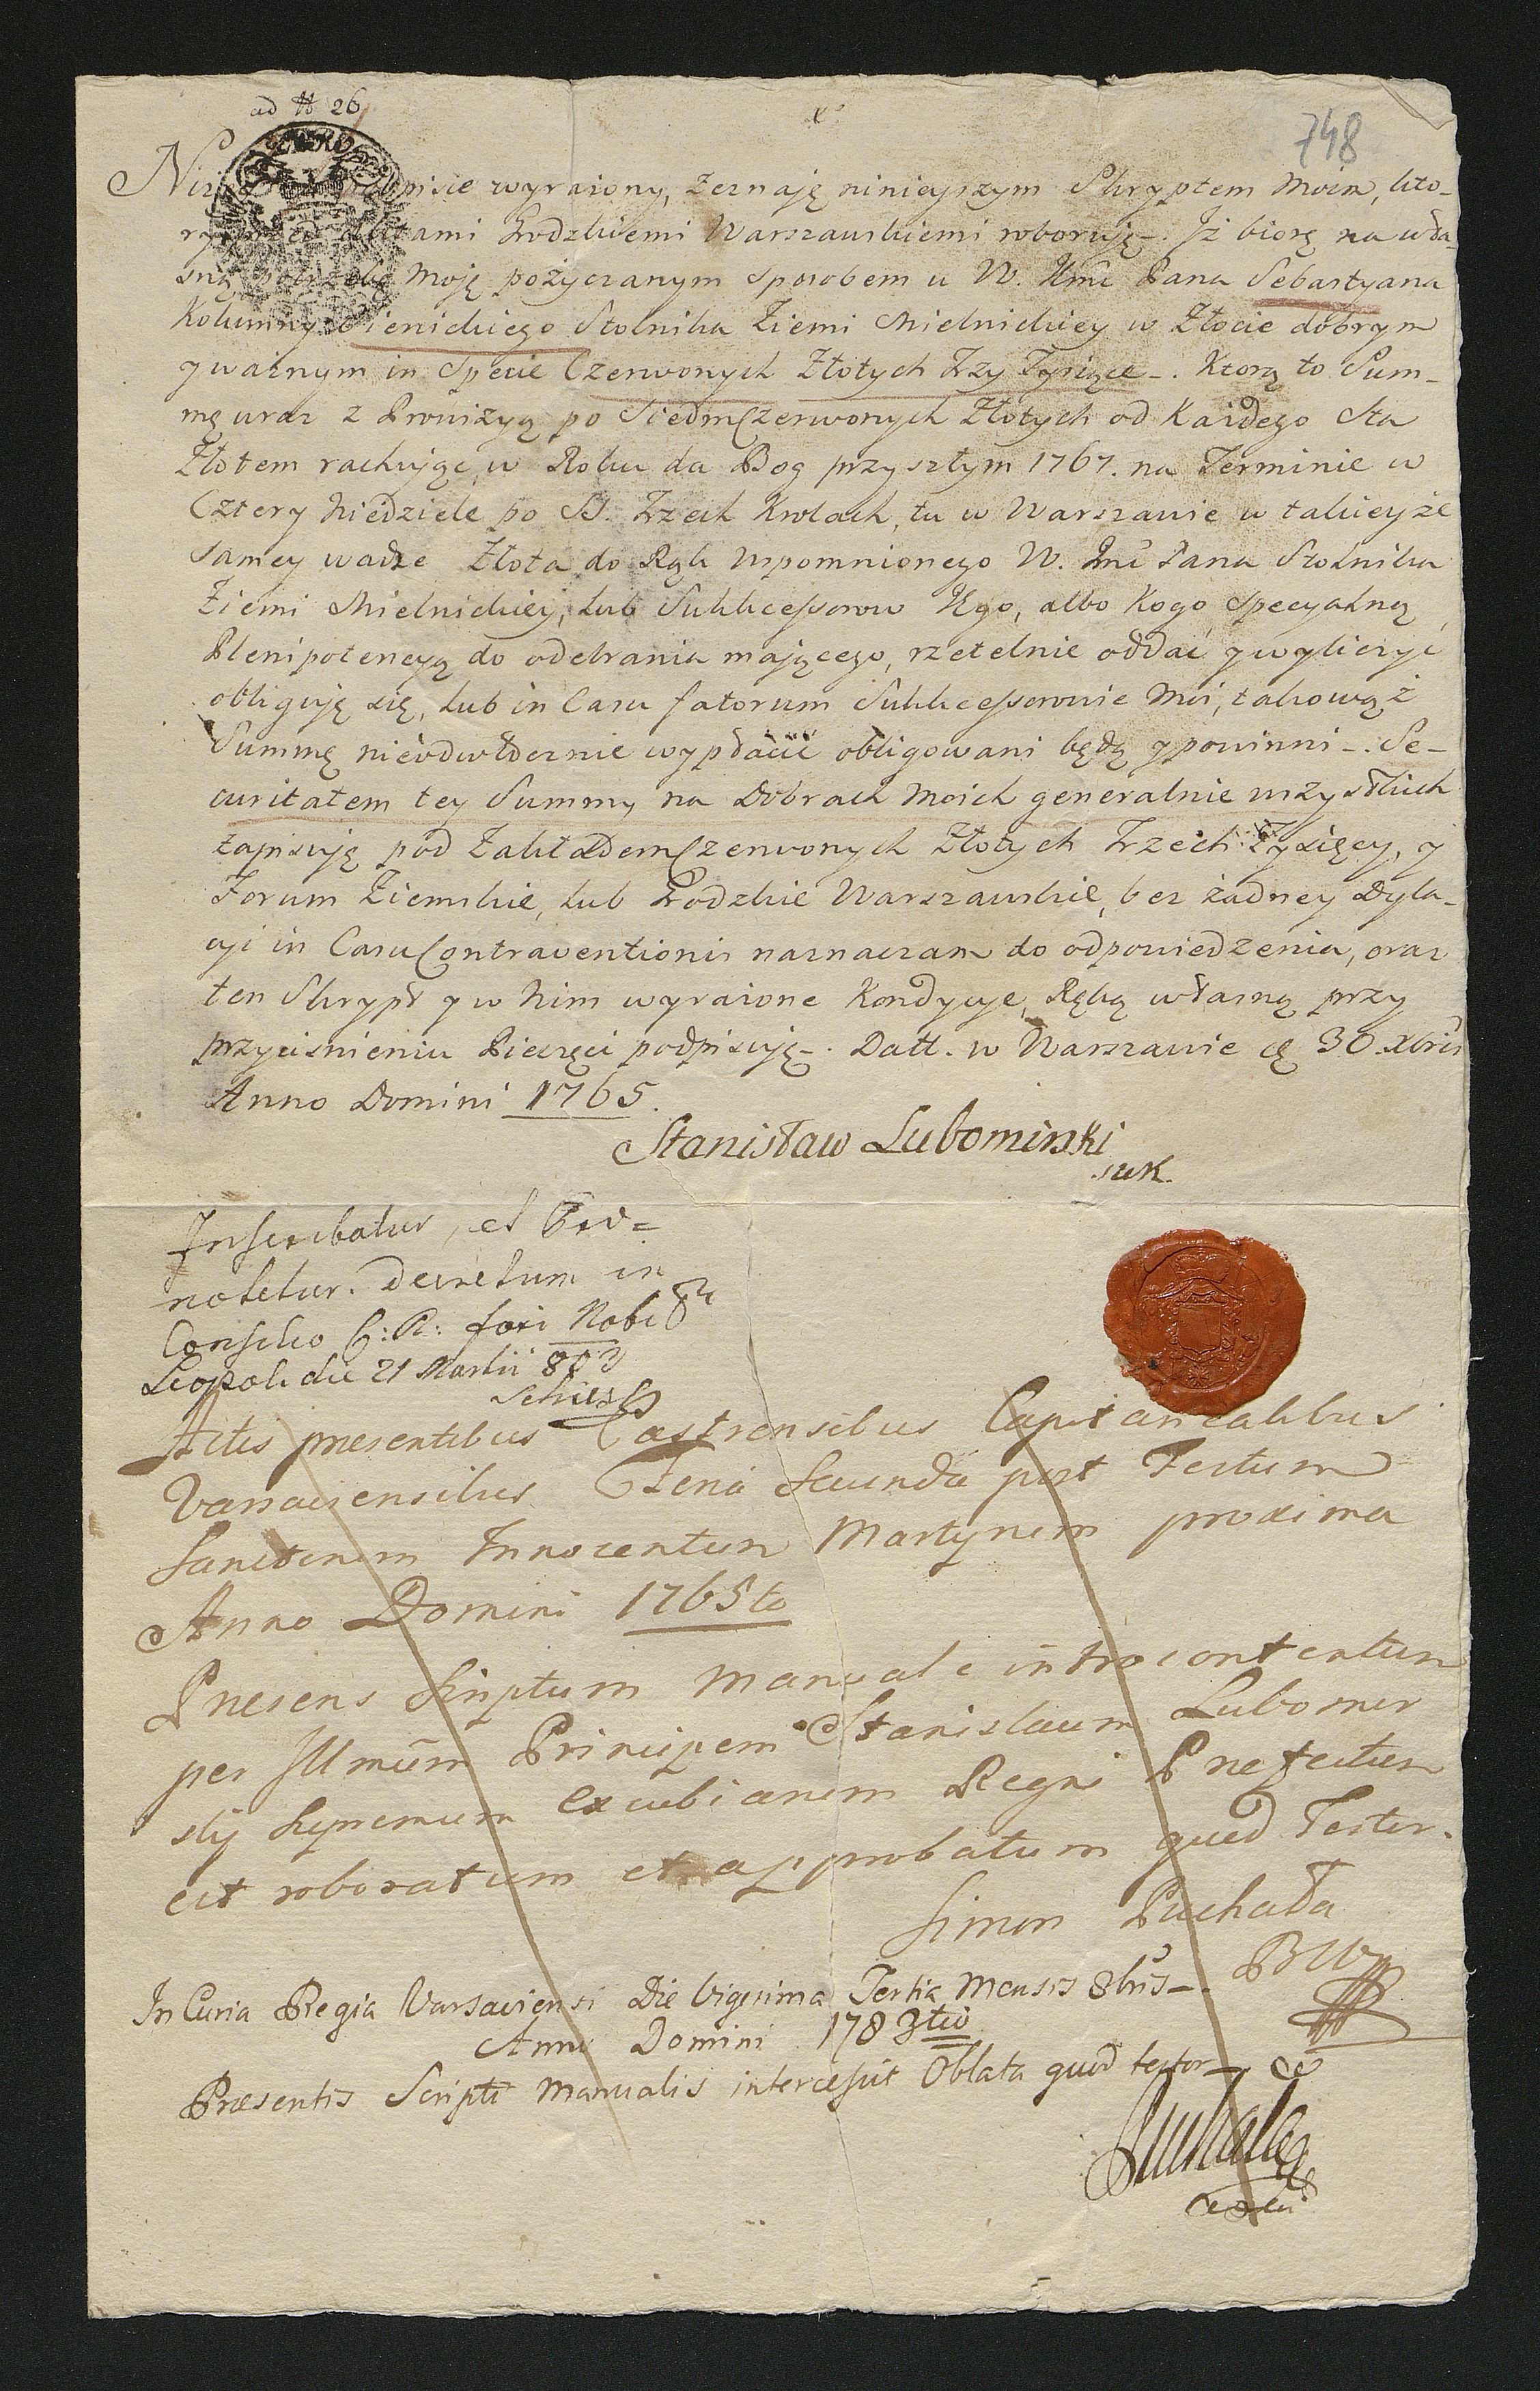 ad N 26
748
podpisie wyrażony, Zeznaję ninieyszym Skryptem Moim, kto-
ry Aktami Grodzkiemi Warszawskiemi roboruję. Iż biorę na wła-
sną potrzebę Moję pożyczanym Sposobem u W. Jmći Pana Sebastyana
Kolumny Sienickiego Stolnika Ziemi Mielnickiey w Złocie dobrym
y ważnym in Specie Czerwonych Złotych Trzy Tysiące. Ktorą to Sum-
mę wraz z Prowizyą po Siedm Czerwonych Złotych od Każdego Sta
Złotem rachując, w Roku da Bog przyszłym 1767. na Terminie w
Cztery Niedziele po SS. Trzech Krolach, tu w Warszawie w takieyże
Samey wadze Złota do Rąk wspomnionego W. Jmći Pana Stolnika
Ziemi Mielnickiey, lub Sukcessorow Jego, albo Kogo Specyalną
Plenipotencyą do odebrania maiącego, rzetelnie oddać y wyliczyć
obliguję się, lub in Casu fatorum Sukcessorowie Moi, takowąż
Summę nieodwłocznie wypłacić obligowani będą y powinni. Se-
curitatem tey Summy na Dobrach Moich generalnie wszystkich
Zapisuję pod Zakładem Czerwonych Złotych Trzech Tysięcy, y
Forum Ziemskie, lub Grodzkie Warszawskie, bez żadney Dyla-
cyi in Casu Contraventionis naznaczam do odpowiedzenia, oraz
ten Skrypt y w Nim wyrażone Kondycye, Ręką własną przy
przyciśnieniu Pieczęci podpisuję. Datt. w Warszawie d. 30 Xbris
Anno Domini 1765.
Stanisław Lubomirski
Inscribatur, et Prae=
notetur. Decretum in
Consilio C: R: fori Nobi
Leopoli die 21 Martii 803
Actis praesentibus Castrensibus Capitanealibus
Varsaviensibus Feria Secunda post Festum
Sanctorum Innocentum Martyrum proxima
Anno Domini 1765to
Praesens Scriptum Manuale introcontentum
per Illmum Principem Stanislaum Lubomir
skij Supremum Excubiarum Regni Praefectum
est roboratum et approbatum quod Testor.
Simon Puchała
In Curia Regia Varsaviensi Die Vigesima Tertia Mensis 8bris
Anno Domini 1783tio
Praesentis Scripti Manualis intercessit Oblata quod testor